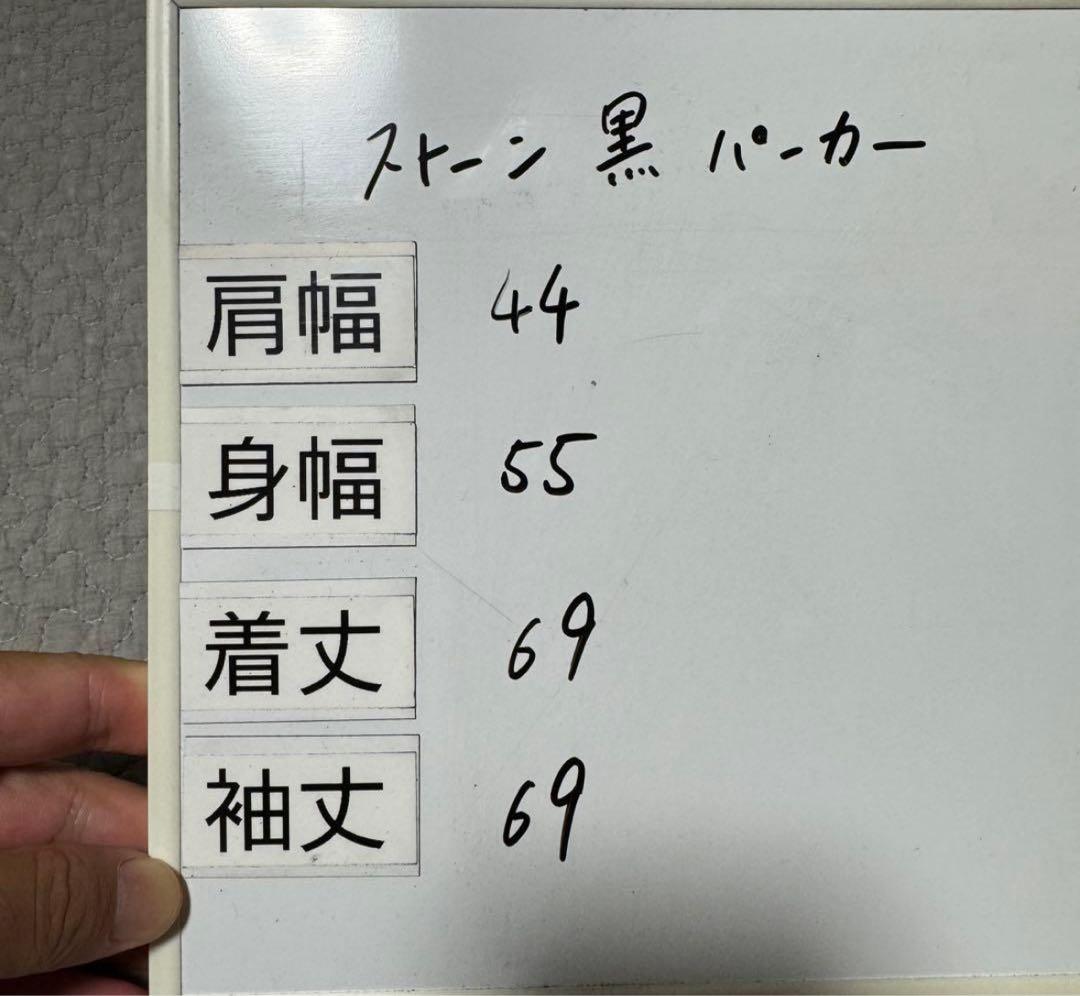 ストーン 黒 パーカー
肩幅 44
身幅 55
着丈 69
袖丈 69